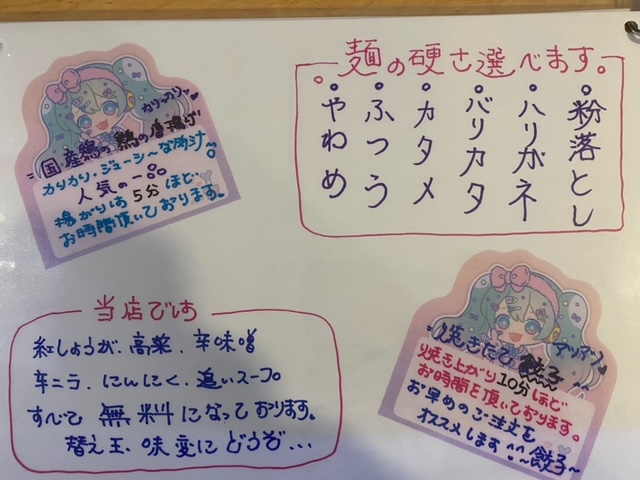 麺の硬さ選べます。
・粉落とし
・ハリガネ
・バリカタ
・カタメ
・ふつう
・やわめ
国産鶏の鶏の唐揚げ
カリカリ・ジューシーな肉汁
人気の一品
揚がりは5分ほど
お時間頂いております。
当店では
紅しょうが、高菜、辛味噌
辛ニラ、にんにく、追いスープ
すべて無料になっております。
替え玉、味変にどうぞ...
アツアツ
焼きたて餃子
焼き上がり10分ほど
お時間を頂いております。
お早めのご注文を
オススメします^^餃子~